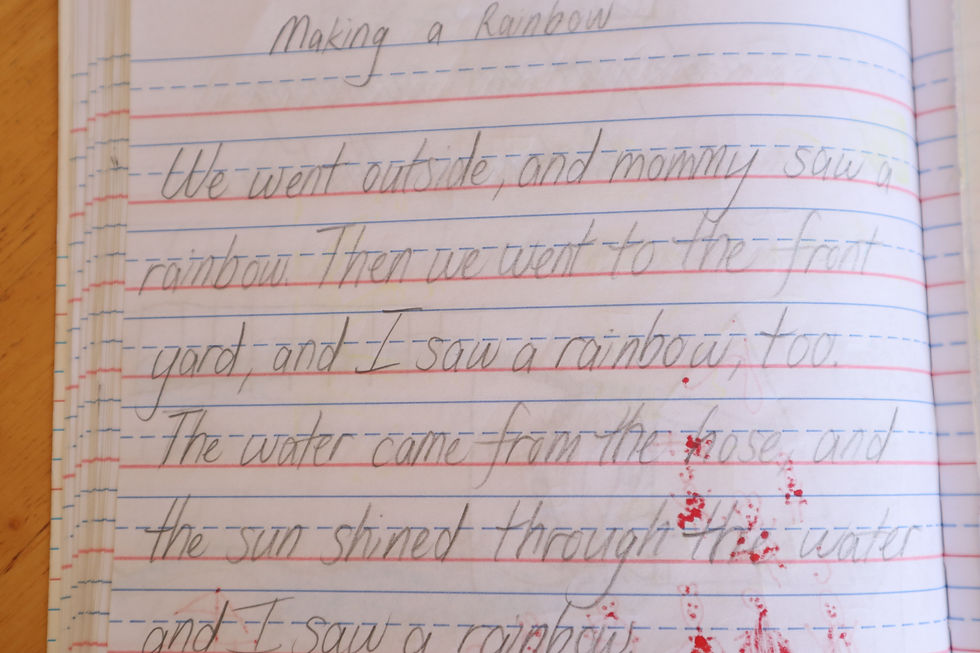 Making a Rainbow
We went outside, and mommy saw a
rainbow. Then we went to the front
yard, and I saw a rainbow, too.
The water came from the hose and
the sun shined through the water
and I saw a rainbow.